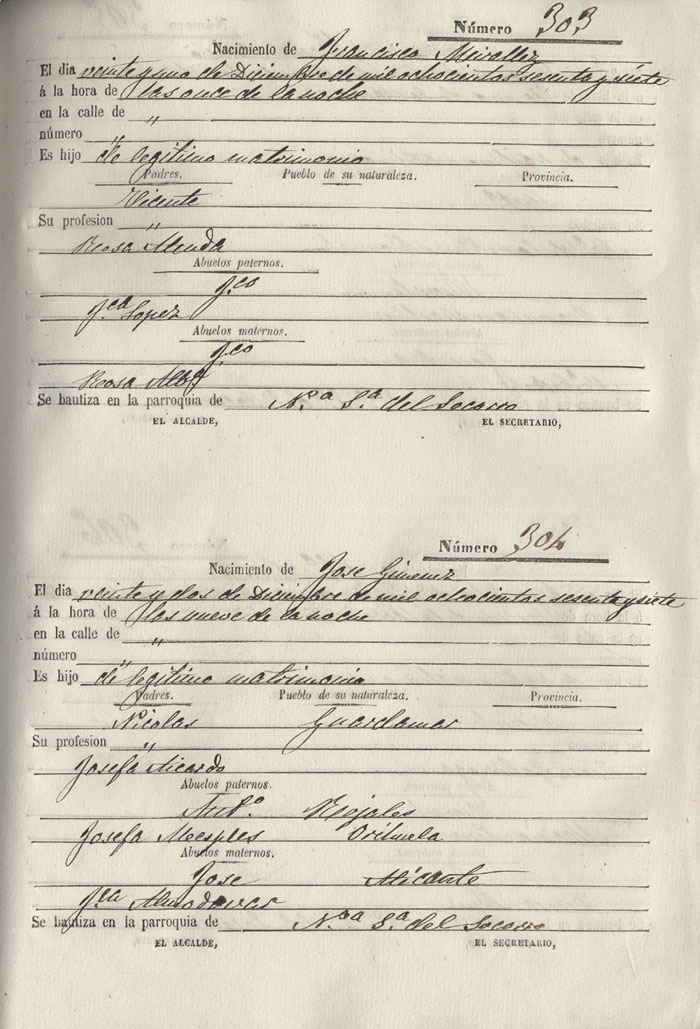 Número 303
Nacimiento de Francisco Miralles
El dia veinte y uno de Diciembre de mil ochocientos sesenta y siete
á la hora de las once de la noche
en la calle de "
número "
Es hijo de legitimo matrimonio
Padres. Pueblo de su naturaleza. Provincia.
Vicente
Su profesion "
Rosa
Abuelos paternos.
Fco
Fca Lopez
Abuelos maternos.
Fco
Rosa
Se bautiza en la parroquia de Nª Sª del Socorro
EL ALCALDE, EL SECRETARIO,
Número 304
Nacimiento de Jose Gimenez
El dia veinte y dos de Diciembre de mil ochocientos sesenta y siete
á la hora de las nueve de la noche
en la calle de "
número "
Es hijo de legitimo matrimonio
Padres. Pueblo de su naturaleza. Provincia.
Nicolas Guardamar
Su profesion "
Josefa
Abuelos paternos.
Antº Rojales
Josefa Orihuela
Abuelos maternos.
Jose Alicante
Fca Almodovar
Se bautiza en la parroquia de Nª Sª del Socorro
EL ALCALDE, EL SECRETARIO,